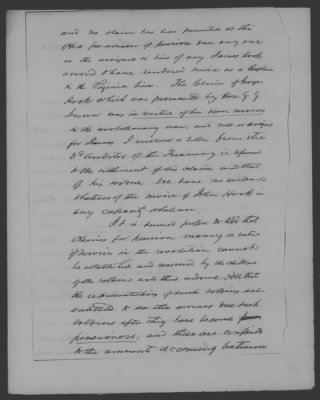 and no claim has been presented at this
Office for arrears of pension due any one
as the assignee or heir of any James Hook
avered to have rendered service as a Captain
in the Virginia line. The Claim of George
Hook which was presented by Hon G G.
was in virtue of his own services
in the revolutionary war, and not as assignee
for James. I enclose a letter from the
3d Auditor of the Treasury in regard
to the settlement of his claim and that
of his widow. We have no evidence
whatever of the service of John Hook in
any capacity whatever.
It is deemed proper to add that
claims for pension money in virtue
of service in the revolution cannot
be established and received by the children
of the soldiers and their widows. All that
the representatives of such soldiers are
entitled to are the arrears due such
soldiers after they have become
pensioners; and these are confined
to the amount accruing between